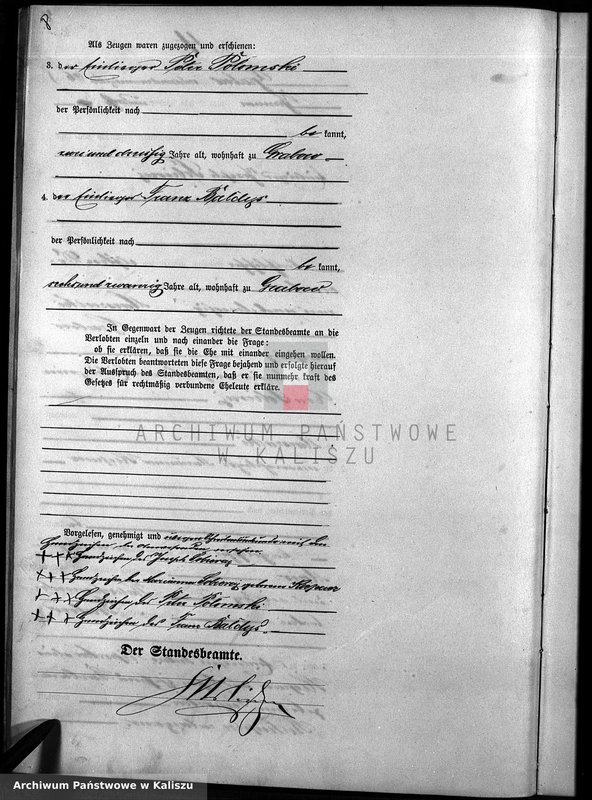 8
Als Zeugen waren zugezogen und erschienen:
3. der Einlieger Peter Polomski
der Persönlichkeit nach
be kannt,
zwei und dreißig Jahre alt, wohnhaft zu Grabow
4. der Einlieger Franz Baldys
der Persönlichkeit nach
be kannt,
sechsundzwanzig Jahre alt, wohnhaft zu Grabow
In Gegenwart der Zeugen richtete der Standesbeamte an die
Verlobten einzeln und nach einander die Frage:
ob sie erklären, daß sie die Ehe mit einander eingehen wollen.
Die Verlobten beantworteten diese Frage bejahend und erfolgte hierauf
der Ausspruch des Standesbeamten, daß er sie nunmehr kraft des
Gesetzes für rechtmäßig verbundene Eheleute erkläre.
ARCHIWUM PAŃSTWOWE
W KALISZU
Vorgelesen, genehmigt und wegen
Handzeichen der
+++ Handzeichen des Joseph
+++ Handzeichen der Marianna geborene
+++ Handzeichen des Peter Polomski
+++ Handzeichen des Franz Baldys
Der Standesbeamte.
Archiwum Państwowe w Kaliszu